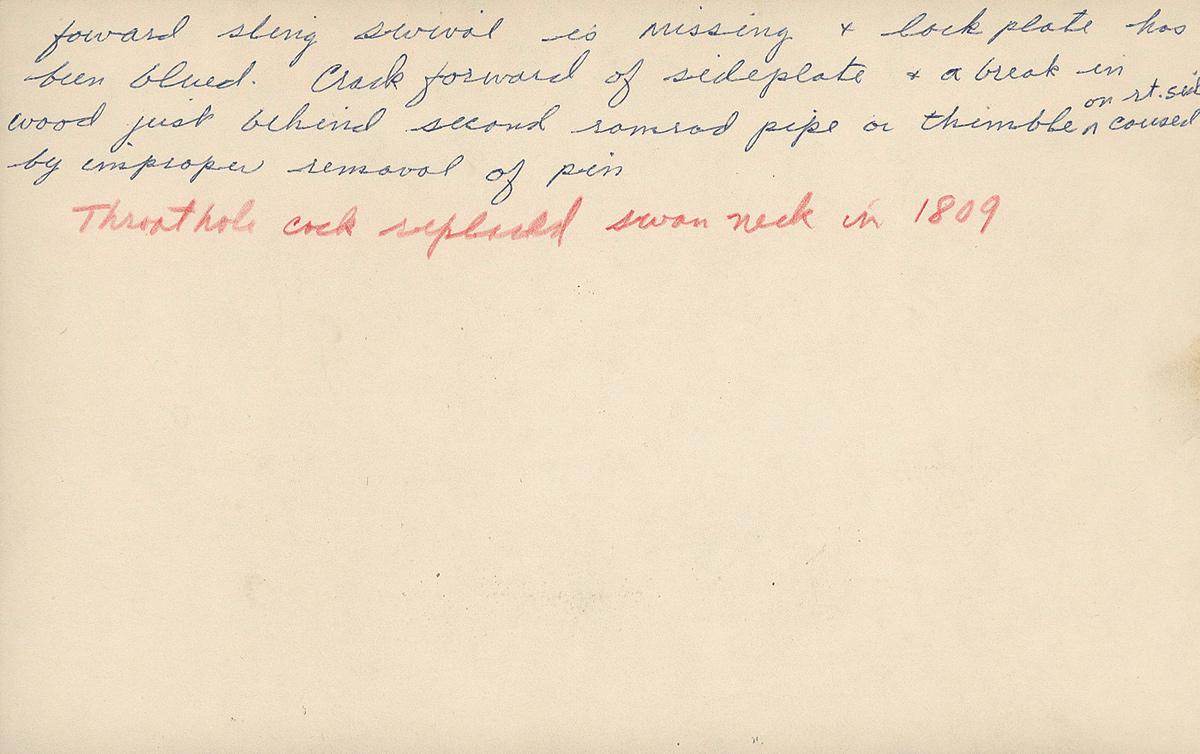 foward sling swivel is missing & lock plate has
been blued. Crack forward of sideplate & a break in
wood just behind second ramrod pipe or thimble ^ on rt. side caused
by improper removal of pin
Throathole cock replaced swan neck in 1809